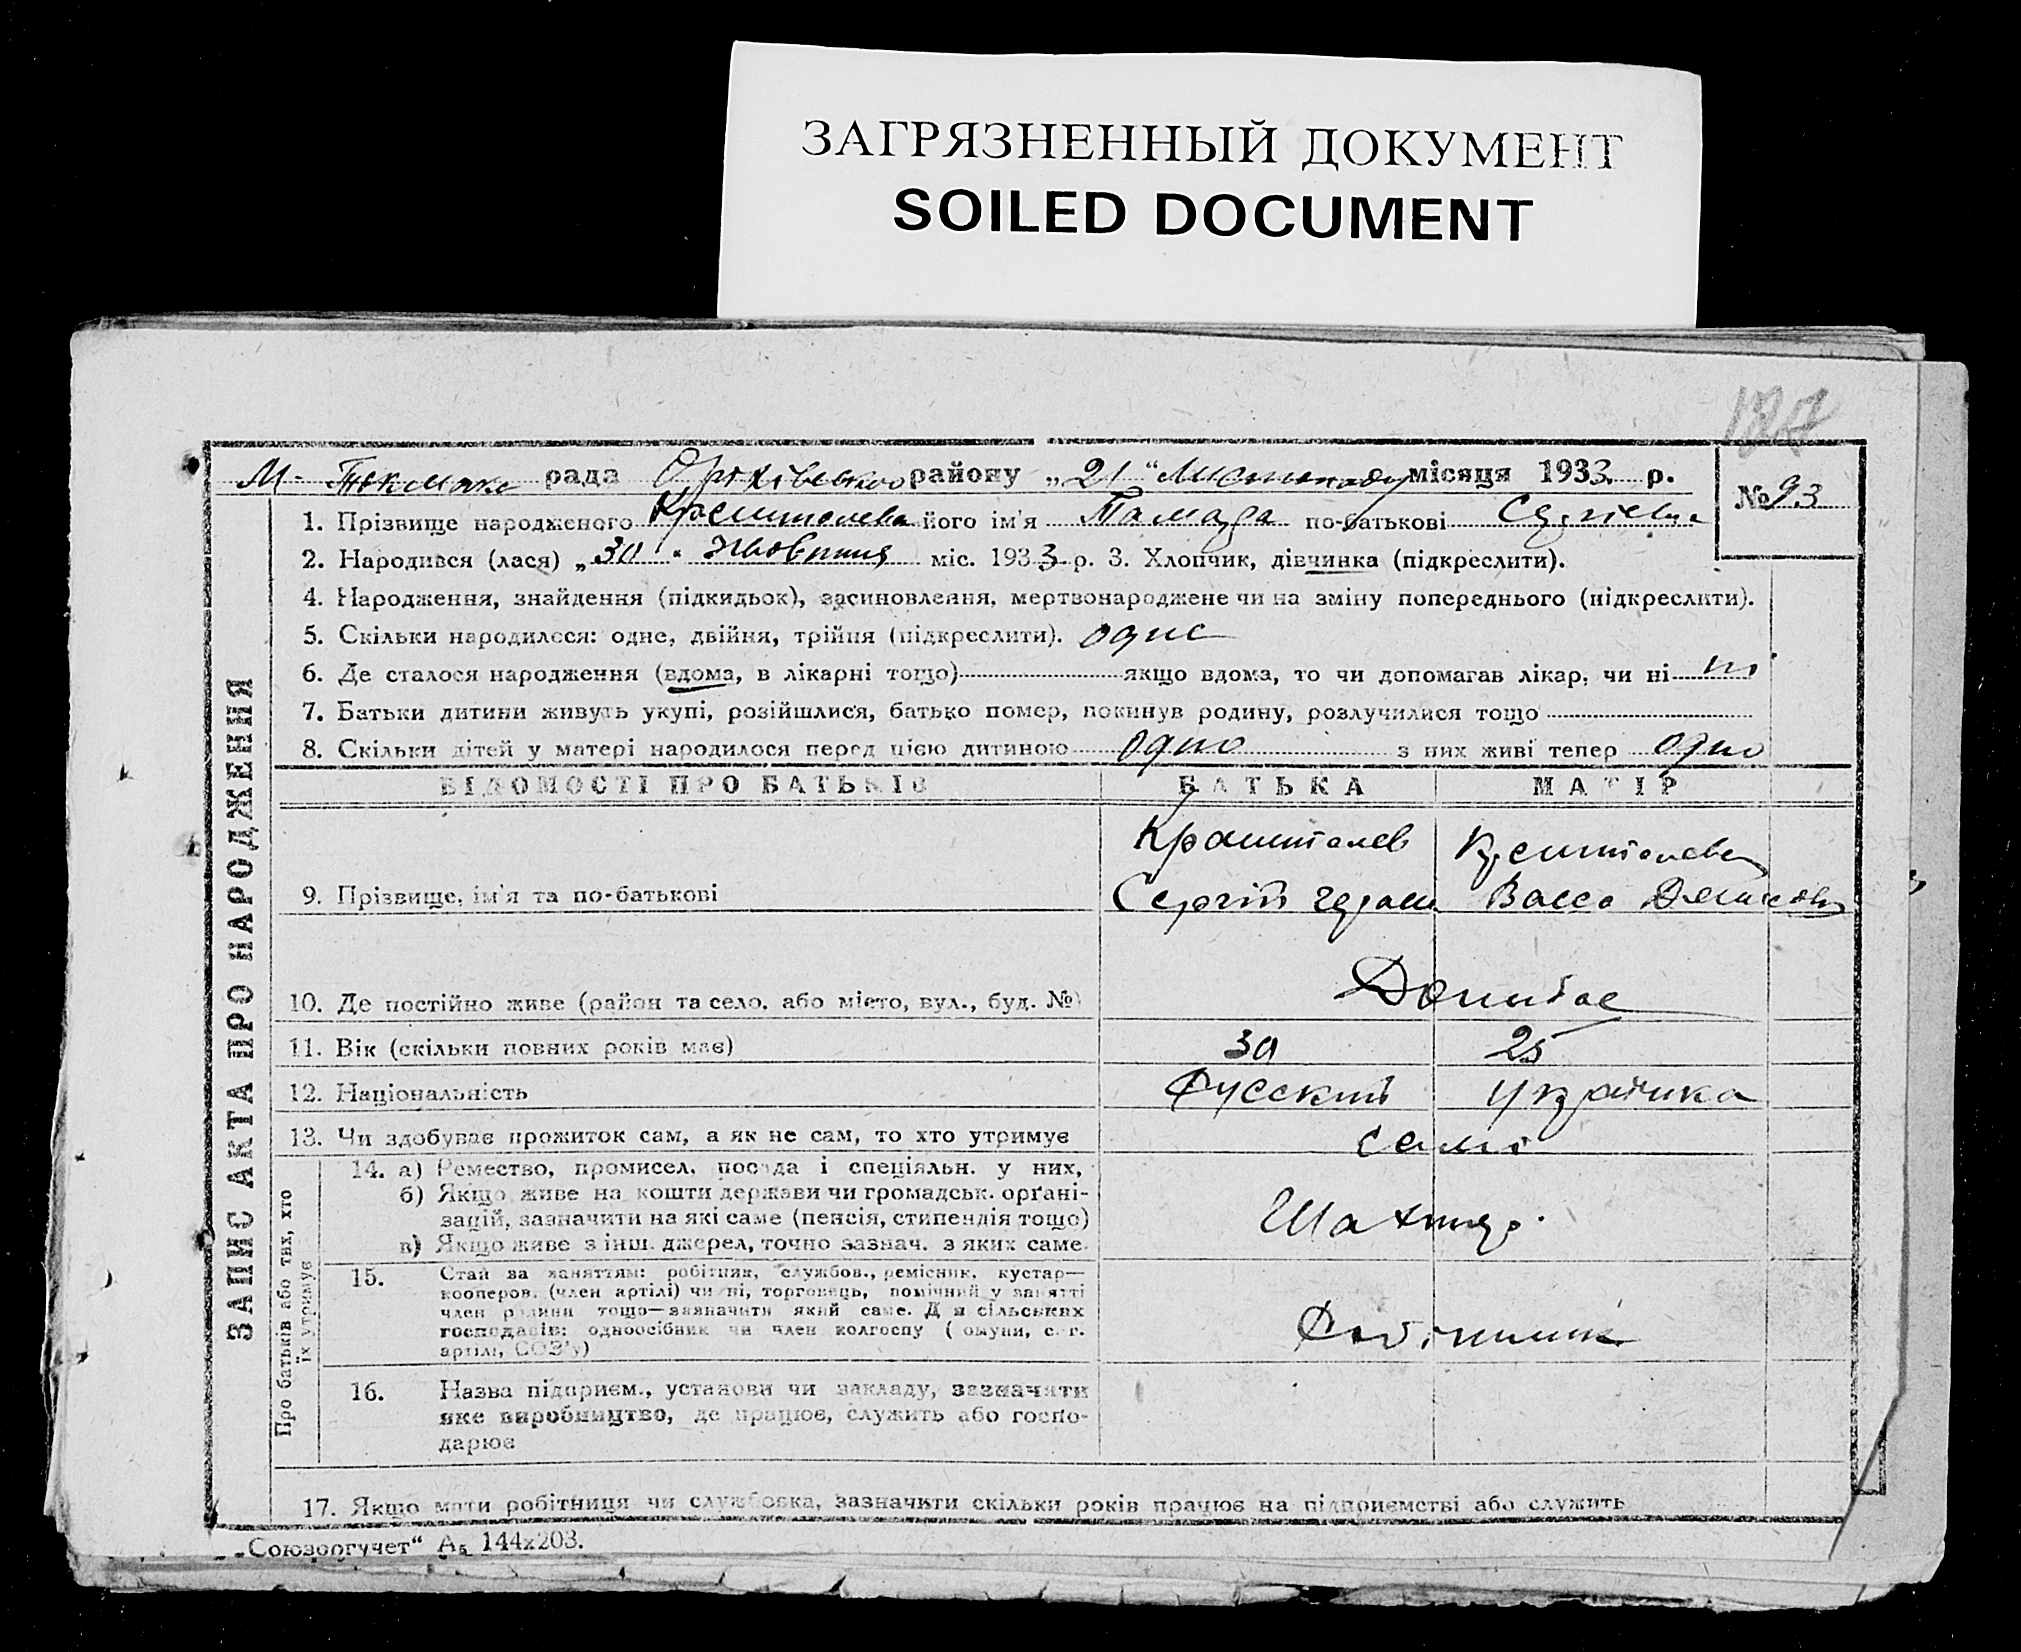 ЗАГРЯЗНЕННЫЙ ДОКУМЕНТ
SOILED DOCUMENT
187
М-Токмак рада Оріхівського району „21“ Листопаду місяця 1933 р.
№ 93
1. Прізвище народженого його ім'я Тамара по-батькові Сергіевна
2. Народився (лася) „30“ Жовтня міс. 1933 р. 3. Хлопчик, дівчинка (підкреслити).
4. Народження, знайдення (підкидьок), засиновлення, мертвонароджене чи на зміну попереднього (підкреслити).
5. Скільки народилося: одне, двійня, трійня (підкреслити). одне
6. Де сталося народження (вдома, в лікарні тощо) якщо вдома, то чи допомагав лікар, чи ні ні
7. Батьки дитини живуть укупі, розійшлися, батько помер, покинув родину, розлучилися тощо
8. Скільки дітей у матері народилося перед цією дитиною одно з них живі тепер одно
ВІДОМОСТІ ПРО БАТЬКІВ БАТЬКА МАТІР
9. Прізвище, ім'я та по-батькові
Сергій Васса
10. Де постійно живе (район та село, або місто, вул., буд. №) Донибас
11. Вік (скільки повних років має) 30 25
12. Національність Русский Українка
13. Чи здобуває прожиток сам, а як не сам, то хто утримує самі
14. а) Ремество, промисел, посада і спеціяльн. у них,
б) Якщо живе на кошти держави чи громадськ. орґані-
зацій, зазначити на які саме (пенсія, стипендія тощо)
в) Якщо живе з інш. джерел, точно зазнач. з яких саме.
Шахтьор.
15. Стан за заняттям: робітник, службов., ремісник, кустар—
кооперов. (член артілі) чи ні, торговець, помічний у занятті
член родини тощо—зазначити який саме. Для сільських
господарів: одноосібник чи член колгоспу (комуни, с.-г.
артілі, СОЗ'у)
Робітник
16. Назва підприєм., установи чи закладу, зазначити
яке виробництво, де працює, служить або госпо-
дарює
17. Якщо мати робітниця чи службовка, зазначити скільки років працює на підприємстві або служить
ЗАПИС АКТА ПРО НАРОДЖЕННЯ
Про батьків або тих, хто
їх утримує
„Союзоргучет“ А₅ 144х203.